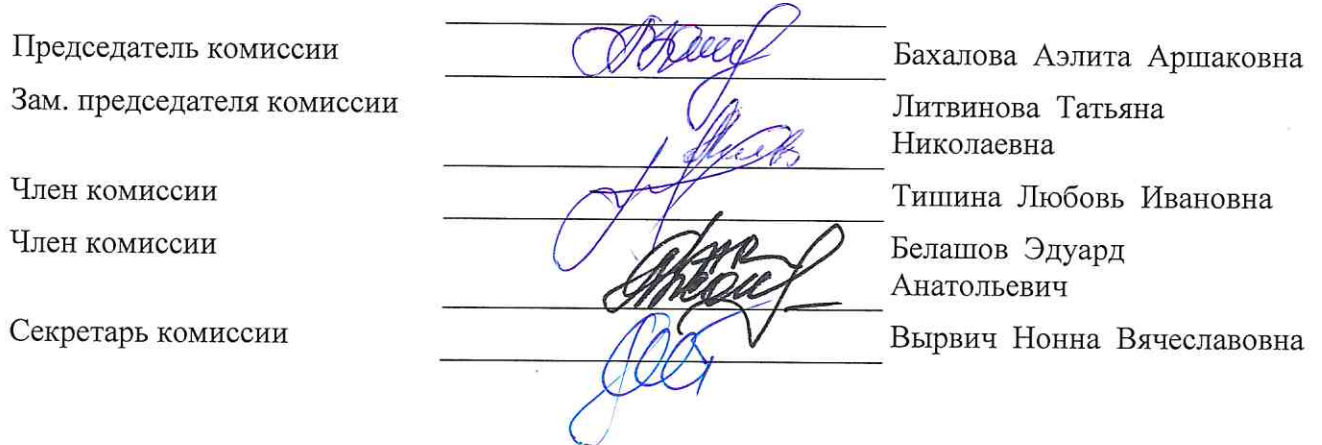 Председатель комиссии Бахалова Аэлита Аршаковна
Зам. председателя комиссии Литвинова Татьяна
Николаевна
Член комиссии Тишина Любовь Ивановна
Член комиссии Белашов Эдуард
Анатольевич
Секретарь комиссии Вырвич Нонна Вячеславовна